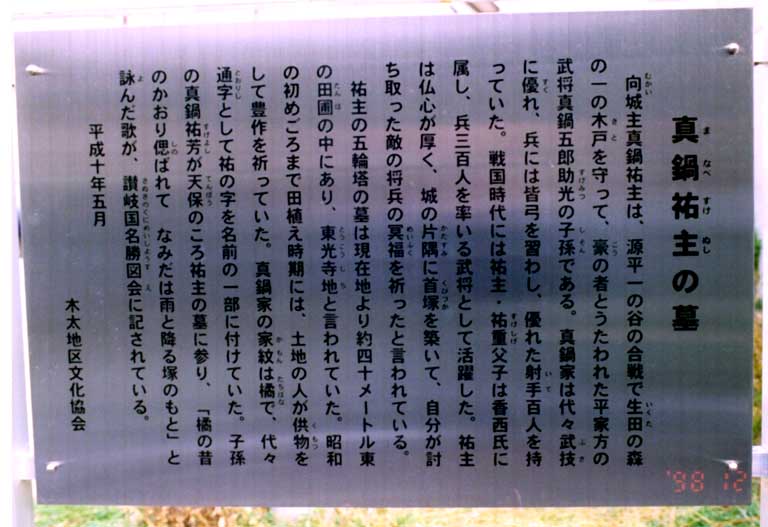 真鍋祐主の墓
向城主真鍋祐主は、源平一の谷の合戦で生田の森
の一の木戸を守って、豪の者とうたわれた平家方の
武将真鍋五郎助光の子孫である。真鍋家は代々武技
に優れ、兵には皆弓を習わし、優れた射手百人を持
っていた。戦国時代には祐主・祐重父子は香西氏に
属し、兵三百人を率いる武将として活躍した。祐主
は仏心が厚く、城の片隅に首塚を築いて、自分が討
ち取った敵の将兵の冥福を祈ったと言われている。
祐主の五輪塔の墓は現在地より約四十メートル東
の田圃の中にあり、東光寺地と言われていた。昭和
の初めごろまで田植え時期には、土地の人が供物を
して豊作を祈っていた。真鍋家の家紋は橘で、代々
通字として祐の字を名前の一部に付けていた。子孫
の真鍋祐芳が天保のころ祐主の墓に参り、「橘の昔
のかおり偲ばれて なみだは雨と降る塚のもと」と
詠んだ歌が、讃岐国名勝図会に記されている。
平成十年五月
木太地区文化協会
'98 12